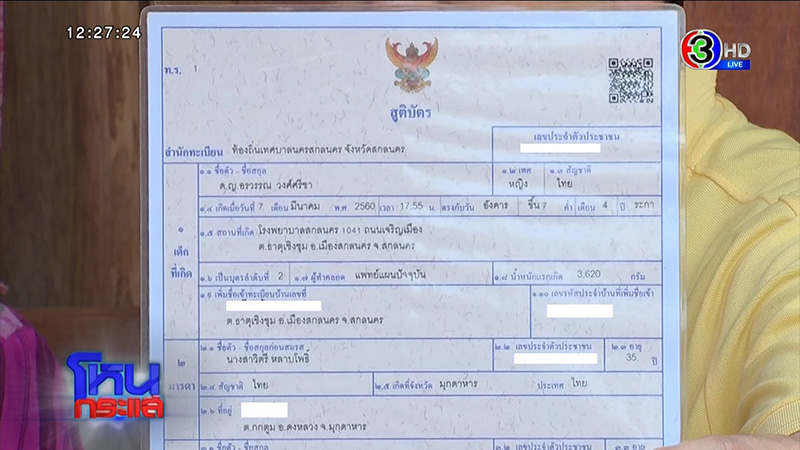 12:27:24
3 HD
LIVE
ท.ร. 1
สูติบัตร
เลขประจำตัวประชาชน
สำนักทะเบียน ท้องถิ่นเทศบาลนครสกลนคร จังหวัดสกลนคร
๑.๑ ชื่อตัว - ชื่อสกุล ๑.๒ เพศ ๑.๓ สัญชาติ
ด.ญ.อรวรรณ วงศ์ศรีชา หญิง ไทย
๑.๔ เกิดเมื่อวันที่ 7 เดือน มีนาคม พ.ศ 2560 เวลา 17:55 น. ตรงกับวัน อังคาร ขึ้น 7 ค่ำ เดือน 4 ปี ระกา
๑ เด็กที่เกิด
๑.๕ สถานที่เกิด โรงพยาบาลสกลนคร 1041 ถนนเจริญเมือง
ต.ธาตุเชิงชุม อ.เมืองสกลนคร จ.สกลนคร
๑.๖ เป็นบุตรลำดับที่ 2 ๑.๗ ผู้ทำคลอด แพทย์แผนปัจจุบัน ๑.๘ น้ำหนักแรกเกิด 3,620 กรัม
๑.๙ เพิ่มชื่อเข้าทะเบียนบ้านเลขที่ ๑.๑๐ เลขรหัสประจำบ้านที่เพิ่มชื่อเข้า
ต.ธาตุเชิงชุม อ.เมืองสกลนคร จ.สกลนคร
๒.๑ ชื่อตัว - ชื่อสกุลก่อนสมรส ๒.๒ เลขประจำตัวประชาชน ๒.๓ อายุ
๒ มารดา
นางสาวิตรี หลาบโพธิ์ 35 ปี
๒.๔ สัญชาติ ไทย ๒.๕ เกิดที่จังหวัด มุกดาหาร ประเทศ ไทย
๒.๖ ที่อยู่
ต.กกตูม อ.ดงหลวง จ.มุกดาหาร
๓.๑ ชื่อตัว - ชื่อสกุล ๓.๒ เลขประจำตัวประชาชน ๓.๓ อายุ
โหนกระแส